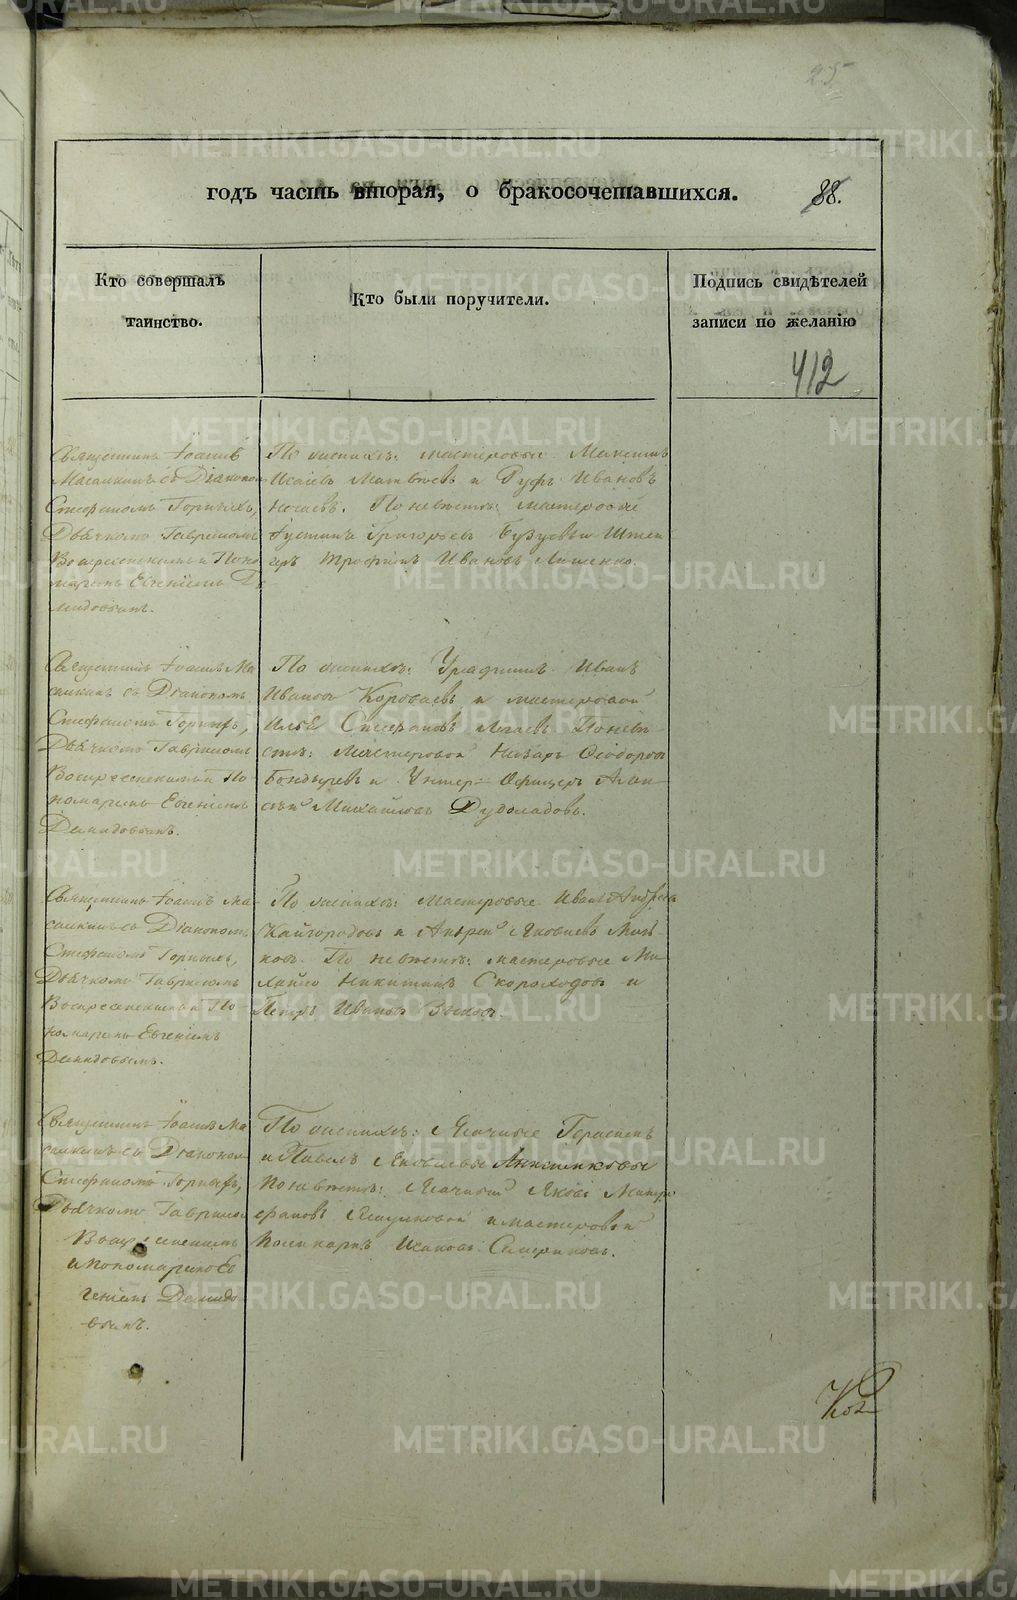 25
годъ часть вторая, о бракосочетавшихся.
88.
Кто совершалъ
таинство.
Кто были поручители.
Подпись свидѣтелей
записи по желанію
412
Священникъ Іоаннъ
Масалкинъ съ Діакономъ
Стефаномъ Горныхъ,
Дьячкомъ Гавріиломъ
Воскресенскимъ и Поно
маремъ Евгеніемъ Де
мидовымъ.
По женихѣ: мастеровые Максимъ
Исаевъ Матвѣевъ и Руфъ Ивановъ
По невѣстѣ: мастеровые
Густинъ Григорьевъ и Штей
геръ Трофимъ Ивановъ
Священникъ Іоаннъ Ма
салкинъ съ Діакономъ
Стефаномъ Горныхъ,
Дьячкомъ Гавріиломъ
Воскресенскимъ и По
номаремъ Евгеніемъ
Демидовымъ.
По женихѣ: Урядникъ Иванъ
Ивановъ Короваевъ и мастеровой
Илья Стефановъ Понѣвѣ
стѣ: Мастеровой Назаръ Ѳеодоровъ
Бондыревъ и Унтер-Офицеръ
Михайловъ Дуболадовъ.
Священникъ Іоаннъ Ма
салкинъ съ Діакономъ
Стефаномъ Горныхъ,
Дьячкомъ Гавріиломъ
Воскресенскимъ и По
номаремъ Евгеніемъ
Демидовымъ.
По женихѣ: Мастеровые Иванъ Андреевъ
Кайгородовъ и Андрей Яковлевъ
По невѣстѣ: мастеровые Ми
хайло Никитинъ Скороходовъ и
Петръ Ивановъ Зыковъ.
Священникъ Іоаннъ Ма
салкинъ съ Діакономъ
Стефаномъ Горныхъ,
Дьячкомъ Гавріиломъ
Воскресенскимъ
и пономаремъ Ев
геніемъ Демидо
вымъ.
По женихѣ: Ясачные Герасимъ
и Павелъ Яковлевы
По невѣстѣ: Ясачный Яковъ Митро
фановъ и мастеровой
Поликарпъ Исаковъ
METRIKI.GASO-URAL.RU